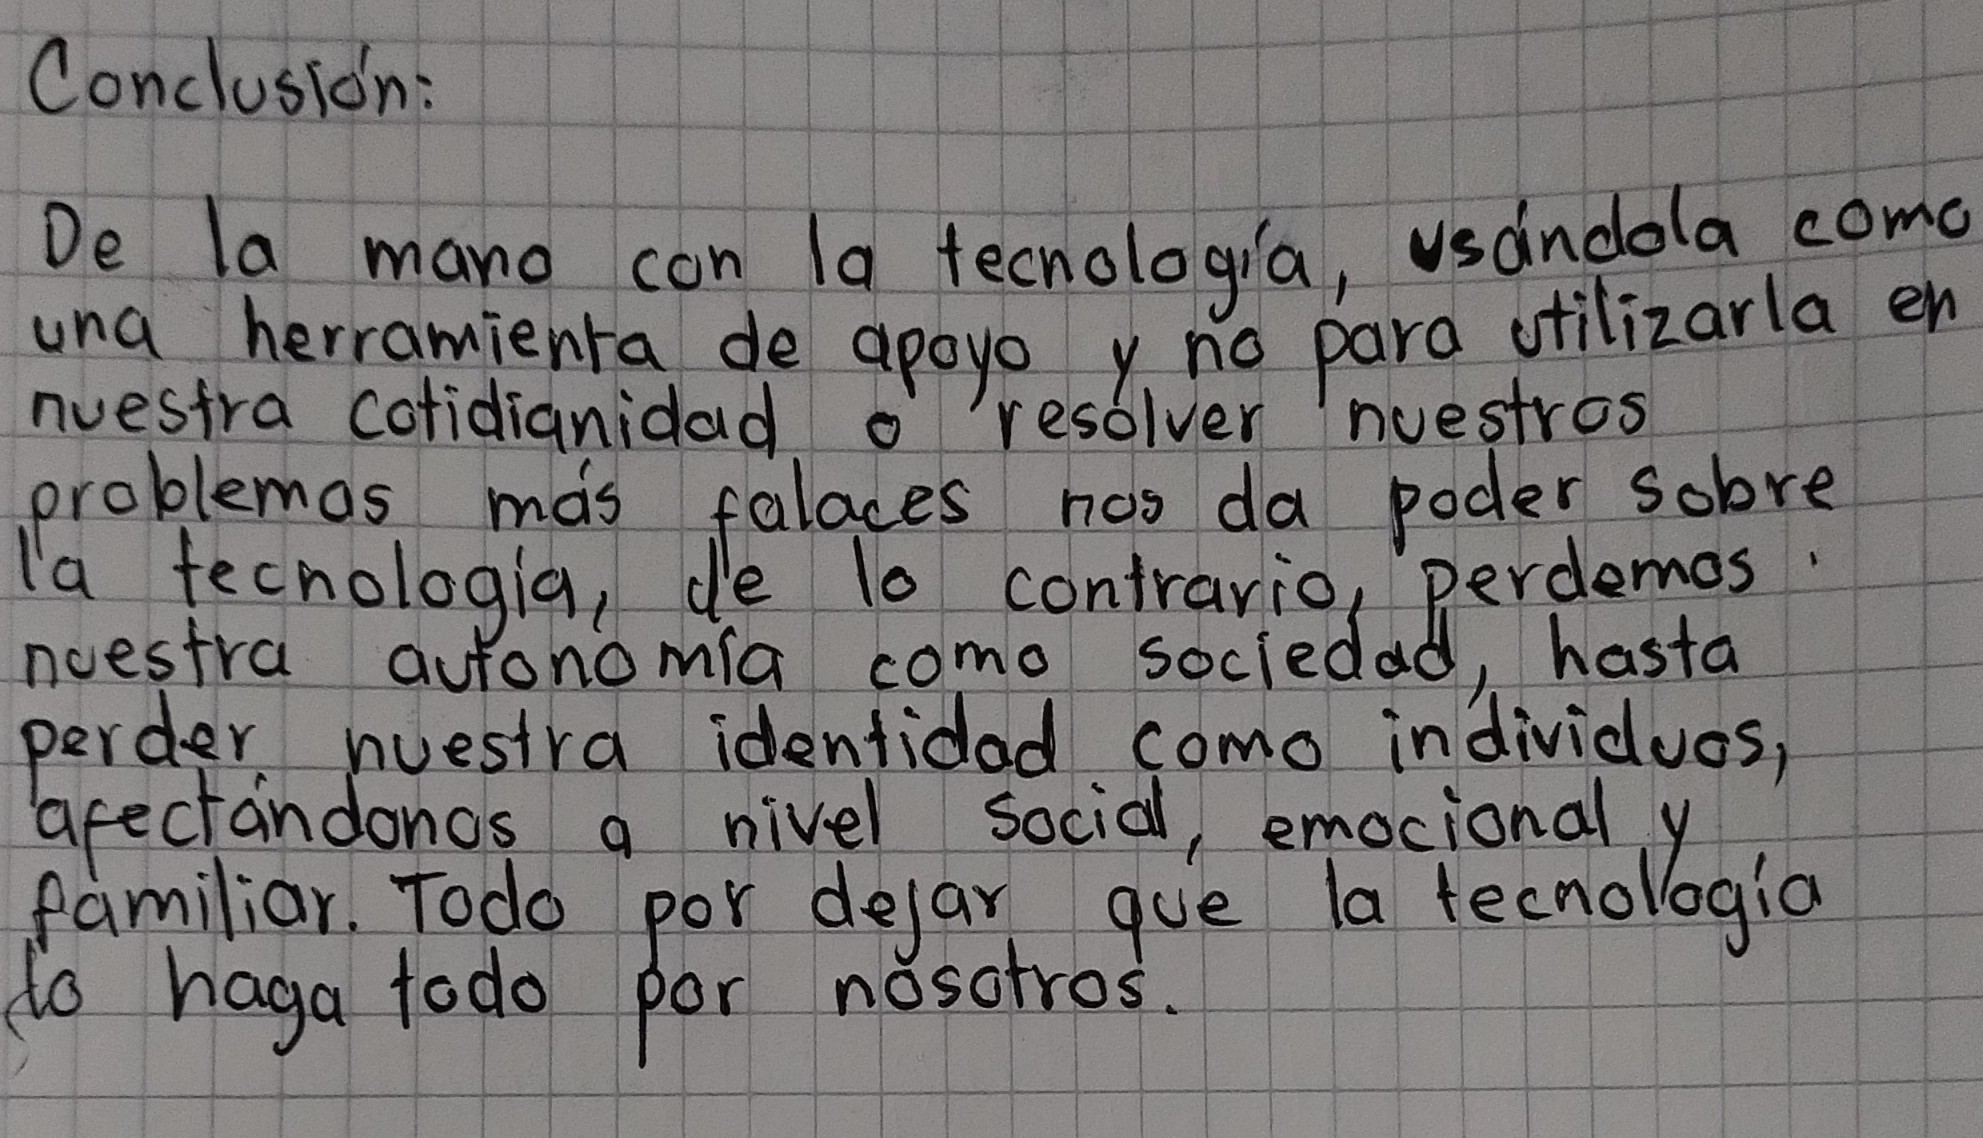 Conclusión:
De la mano con la tecnología, usándola como
una herramienta de apoyo y no para utilizarla en
nuestra cotidianidad o resolver nuestros
problemas más falaces nos da poder sobre
la tecnología, de lo contrario, perdemos
nuestra autonomía como sociedad, hasta
perder nuestra identidad como individuos,
afectándonos a nivel social, emocional y
familiar. Todo por dejar que la tecnología
lo haga todo por nosotros.